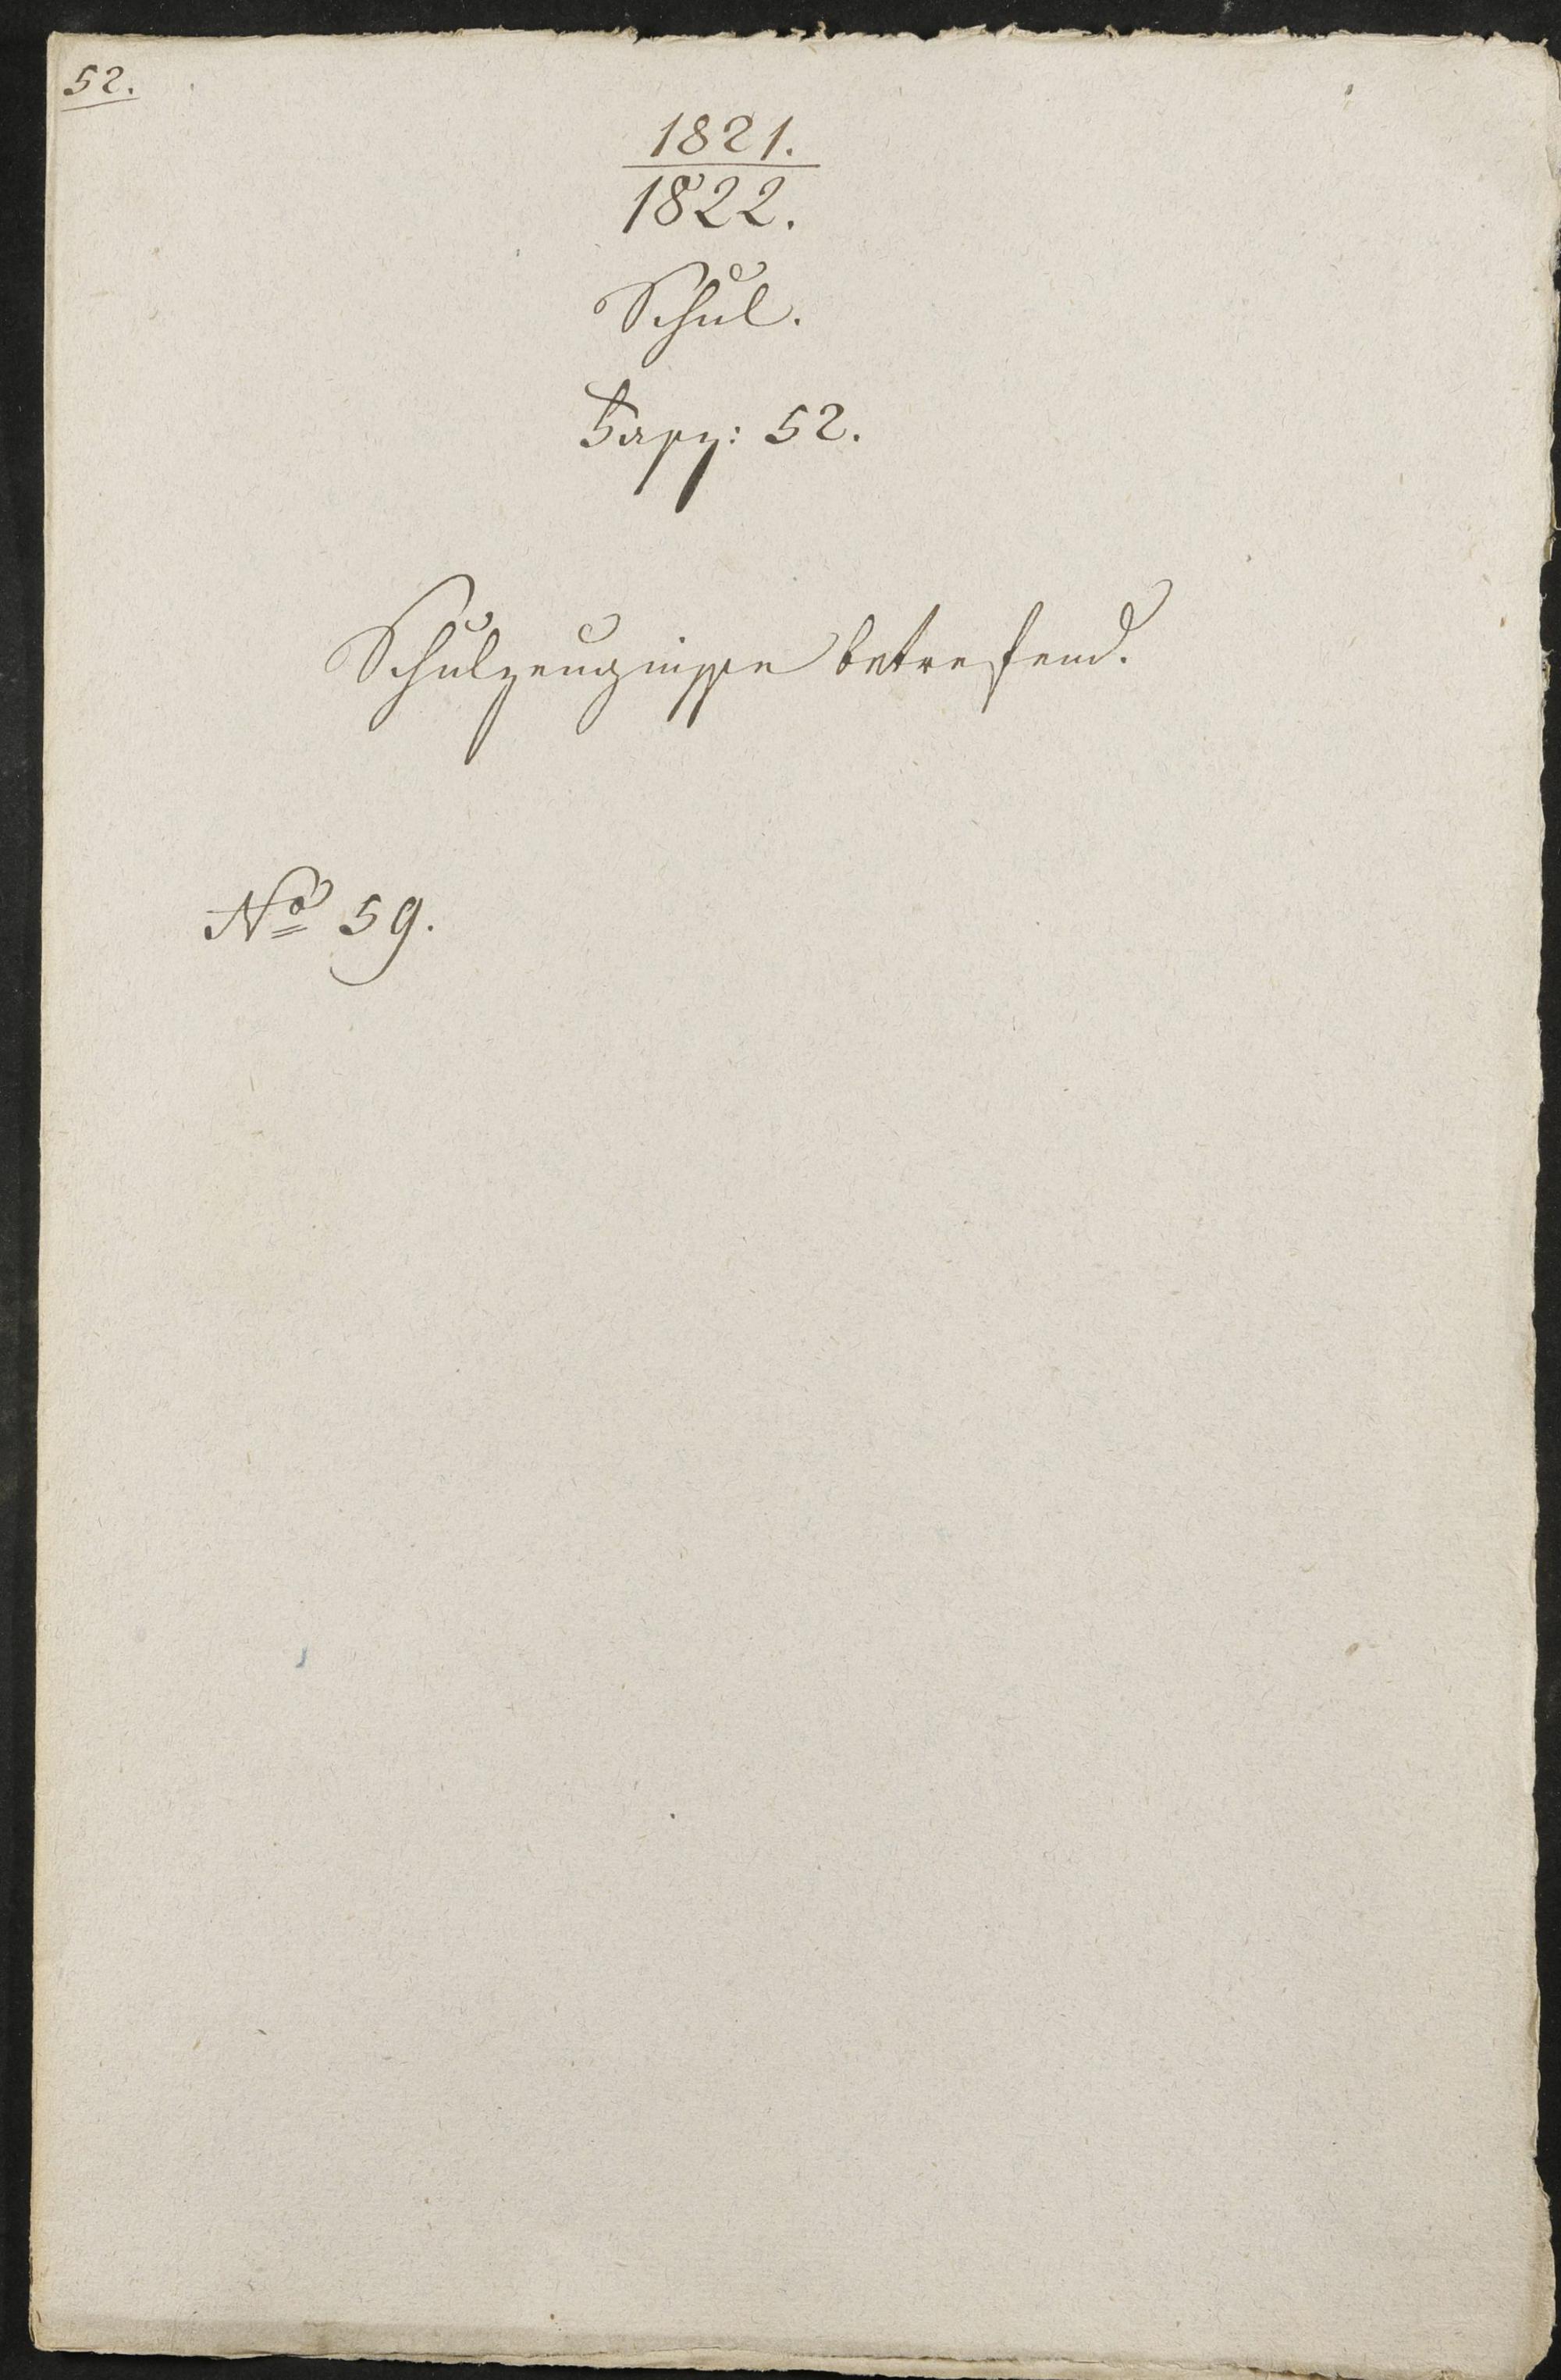 52.
1821.
1822.
Schul.
Fasz: 52.
Schulzeugnisse betrefend.
No 59.